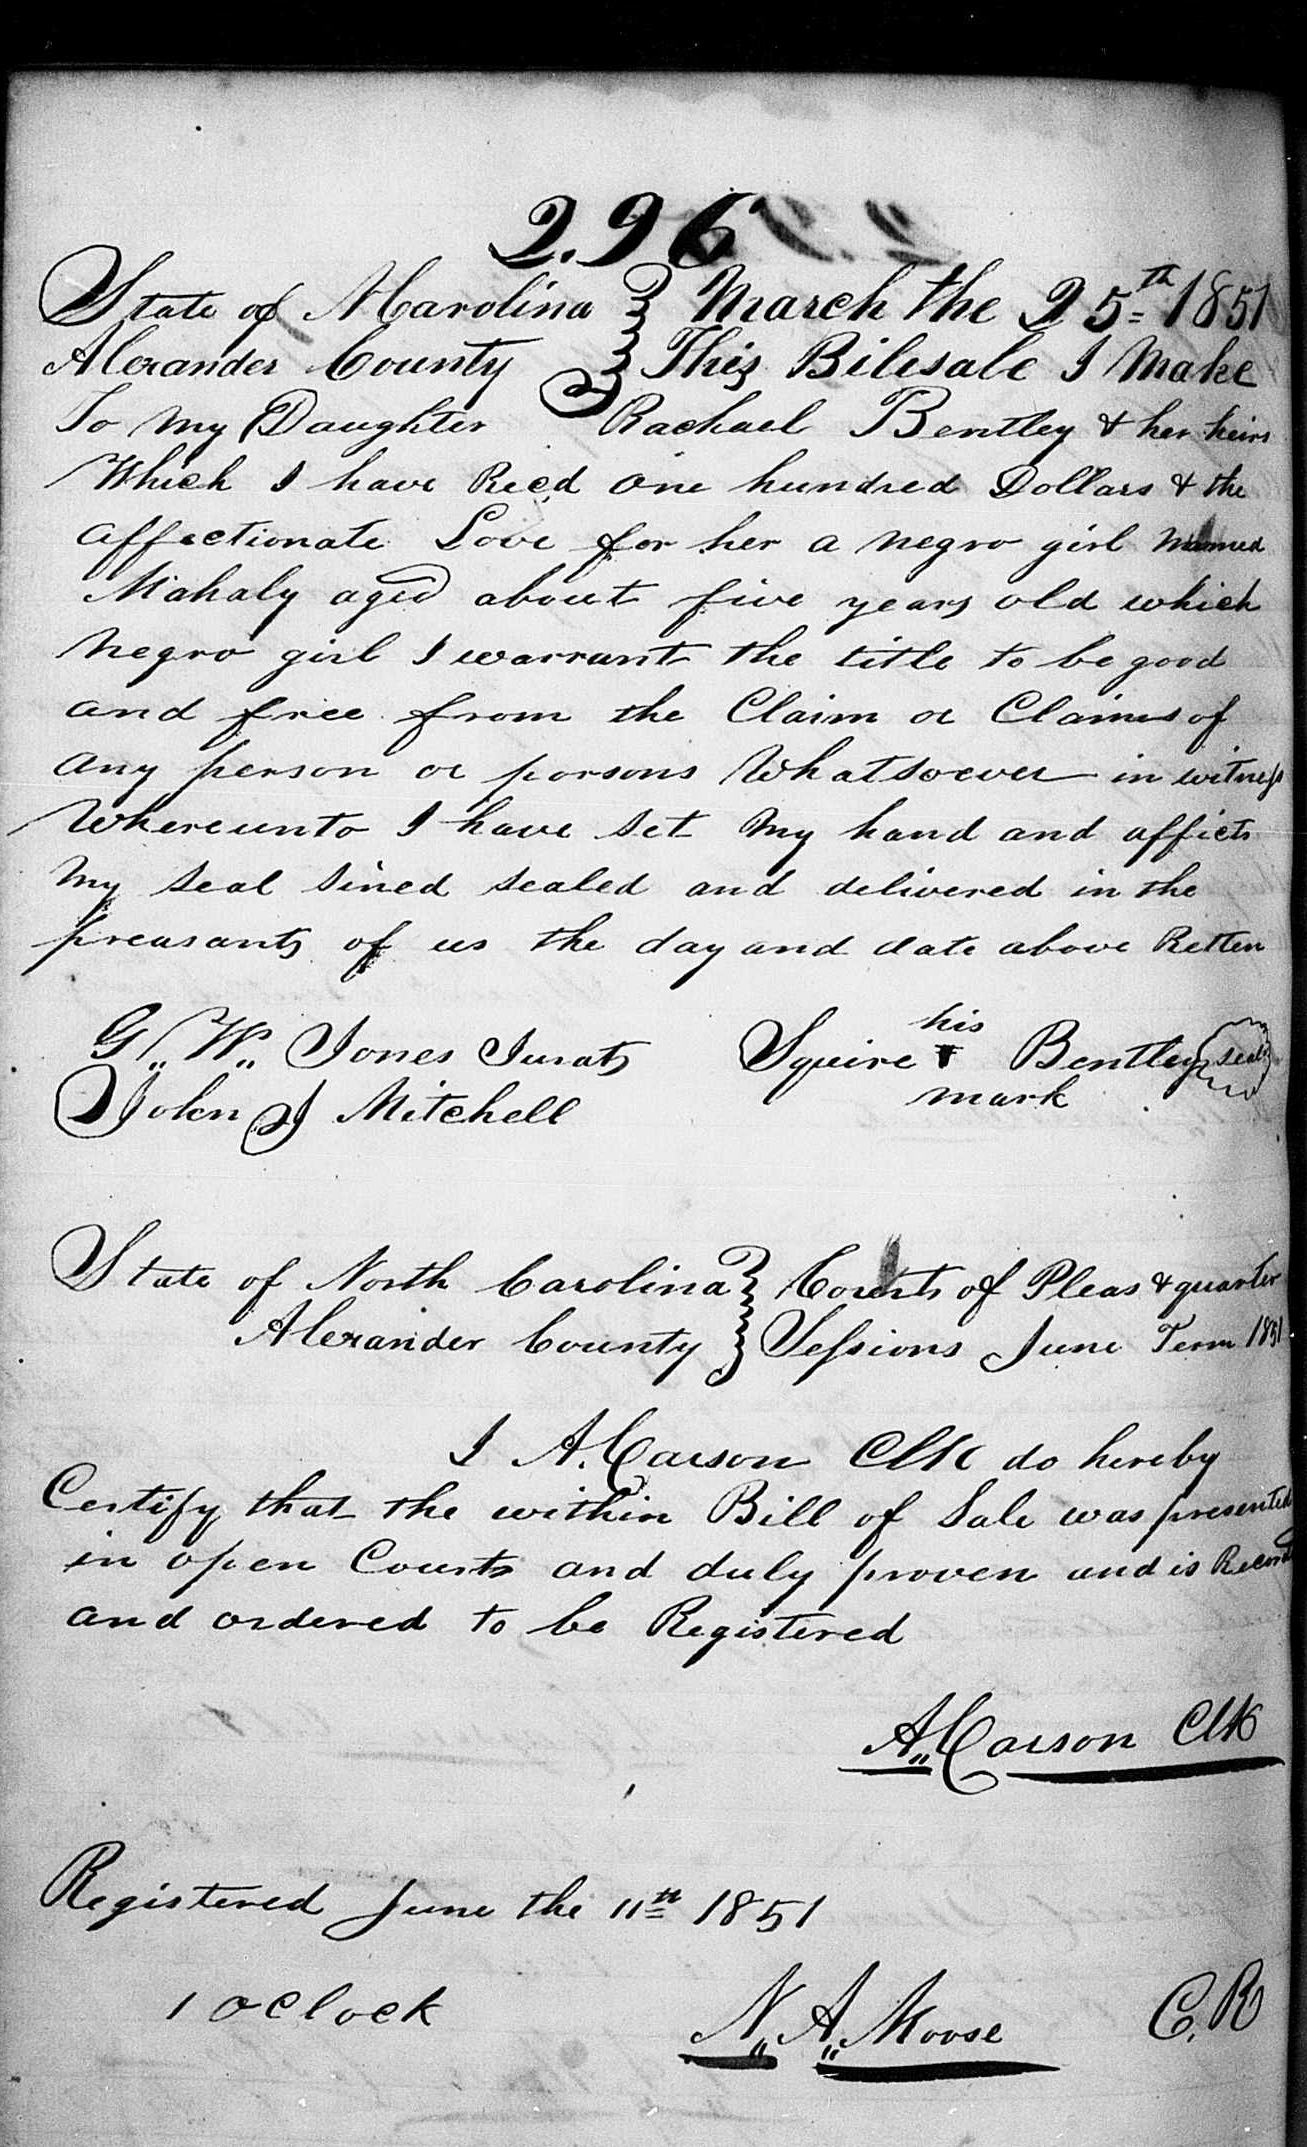 296
State of N Carolina } March the 25th 1851
Alexander County } This Bilesale I Make
To my Daughter Rachael Bentley & her heirs
Which I have Recd one hundred Dollars & the
affectionate Love for her a negro girl Named
Mahaly aged about five years old which
negro girl I warrant the title to be good
and free from the Claim or Claims of
any person or porsons Whatsoever in witness
Whereunto I have set my hand and affict
my seal sined sealed and delivered in the
preasants of us the day and date above Retten
his
G. W. Jones Jurat Squire + Bentley (seal)
mark
John J Mitchell
State of North Carolina } Court of Pleas & quarter
Alexander County } Sessions June Term 1851
I A. Carson Clk do hereby
Certify that the within Bill of Sale was presented
in open Court and duly proven and is Recorded
and ordered to be Registered
A. Carson Clk
Registered June the 11th 1851
1 oClock N. A. Moose C. R